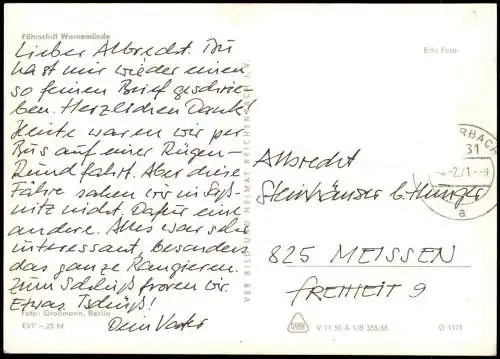 Fährschiff Warnemünde
Lieber Albrecht. Du
hast mir wieder einen
so feinen Brief geschrie-
ben. Herzlichen Dank!
Heute waren wir per
Bus auf einer Rügen-
Rundfahrt. Aber diese
Fähre sahen wir in Saß-
nitz nicht. Dafür eine
andere. Alles war sehr
interessant, besonders
das ganze Rangieren.
Zum Schluß froren wir
Etwas. Tschüß!
Dein Vater
Foto: Großmann, Berlin
EVP –.25 M
VEB BILD UND HEIMAT REICHENBACH I. V.
Echt Foto
RBACH
31
a
Albrecht
Steinhäuser b. Hunger
825 MEISSEN
FREIHEIT 9
V 11 50 A 1/B 355/68
O 1171